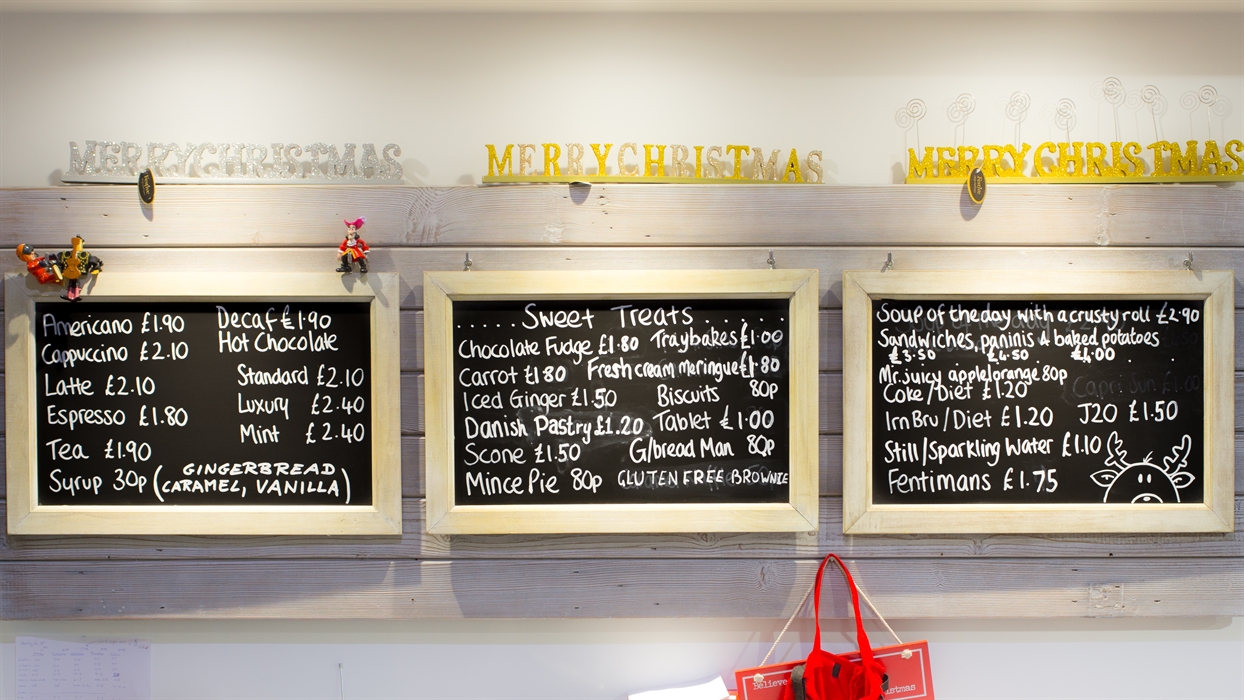 MERRY CHRISTMAS
MERRY CHRISTMAS
MERRY CHRISTMAS
Americano £1.90
Cappuccino £2.10
Latte £2.10
Espresso £1.80
Tea £1.90
Syrup 30p (GINGERBREAD
CARAMEL, VANILLA)
Decaf £1.90
Hot Chocolate
Standard £2.10
Luxury £2.40
Mint £2.40
.....Sweet Treats.....
Chocolate Fudge £1.80
Carrot £1.80
Iced Ginger £1.50
Danish Pastry £1.20
Scone £1.50
Mince Pie 80p
Traybakes £1.00
Fresh cream meringue £1.80
Biscuits 80p
Tablet £1.00
G/bread Man 80p
GLUTEN FREE BROWNIE
Soup of the day with a crusty roll £2.90
Sandwiches, paninis & baked potatoes
£3.50 £4.50 £4.00
Mr. juicy apple/orange 80p
Coke/Diet £1.20
Irn Bru/Diet £1.20 J20 £1.50
Still/Sparkling Water £1.10
Fentimans £1.75
Believe